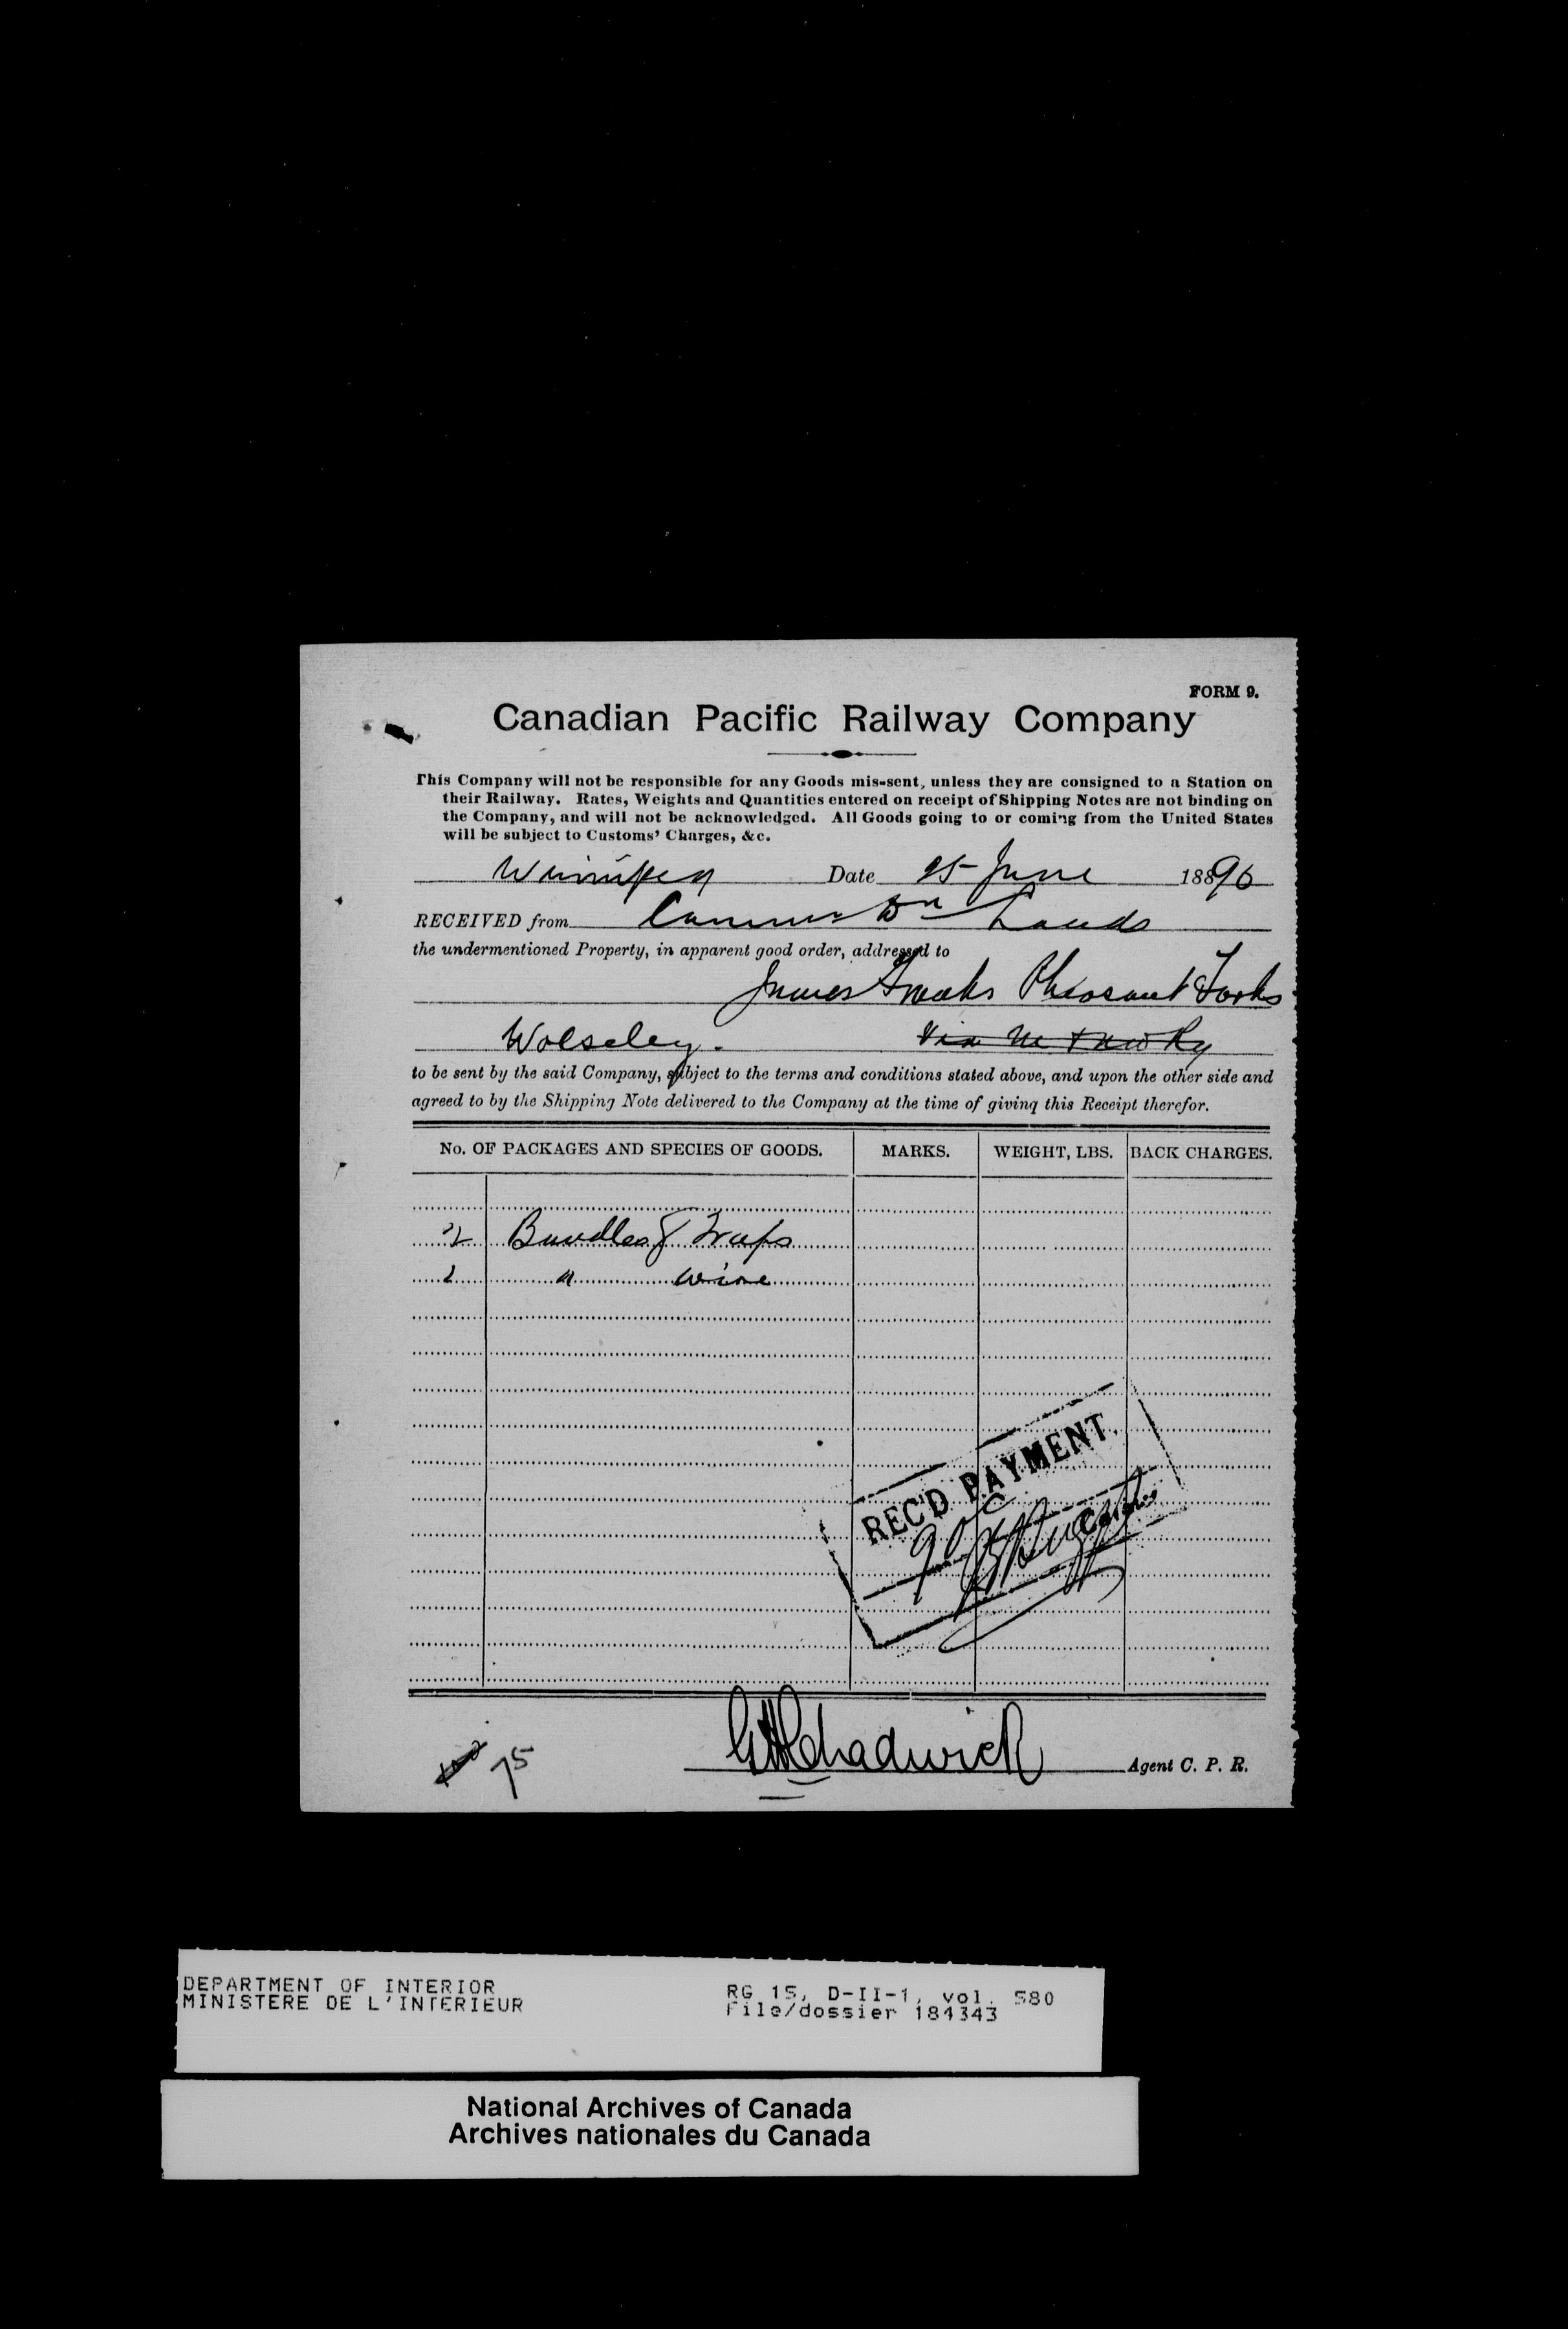 FORM 9.
Canadian Pacific Railway Company
This Company will not be responsible for any Goods mis-sent, unless they are consigned to a Station on
their Railway. Rates, Weights and Quantities entered on receipt of Shipping Notes are not binding on
the Company, and will not be acknowledged. All Goods going to or coming from the United States
will be subject to Customs' Charges, &c.
Winnipeg Date 25 June 18890
RECEIVED from Commr Dn Lands
the undermentioned Property, in apparent good order, addressed to
James Pheasant Forks
Wolseley. Via M & NW Ry
to be sent by the said Company, subject to the terms and conditions stated above, and upon the other side and
agreed to by the Shipping Note delivered to the Company at the time of giving this Receipt therefor.
No. OF PACKAGES AND SPECIES OF GOODS. MARKS. WEIGHT, LBS. BACK CHARGES.
2 Bundles Traps
1 " wire
REC'D PAYMENT.
90c
Cashier
75
GH Chadwick Agent C. P. R.
DEPARTMENT OF INTERIOR
MINISTERE DE L'INTERIEUR
RG 15, D-II-1, vol. 580
File/dossier 184343
National Archives of Canada
Archives nationales du Canada